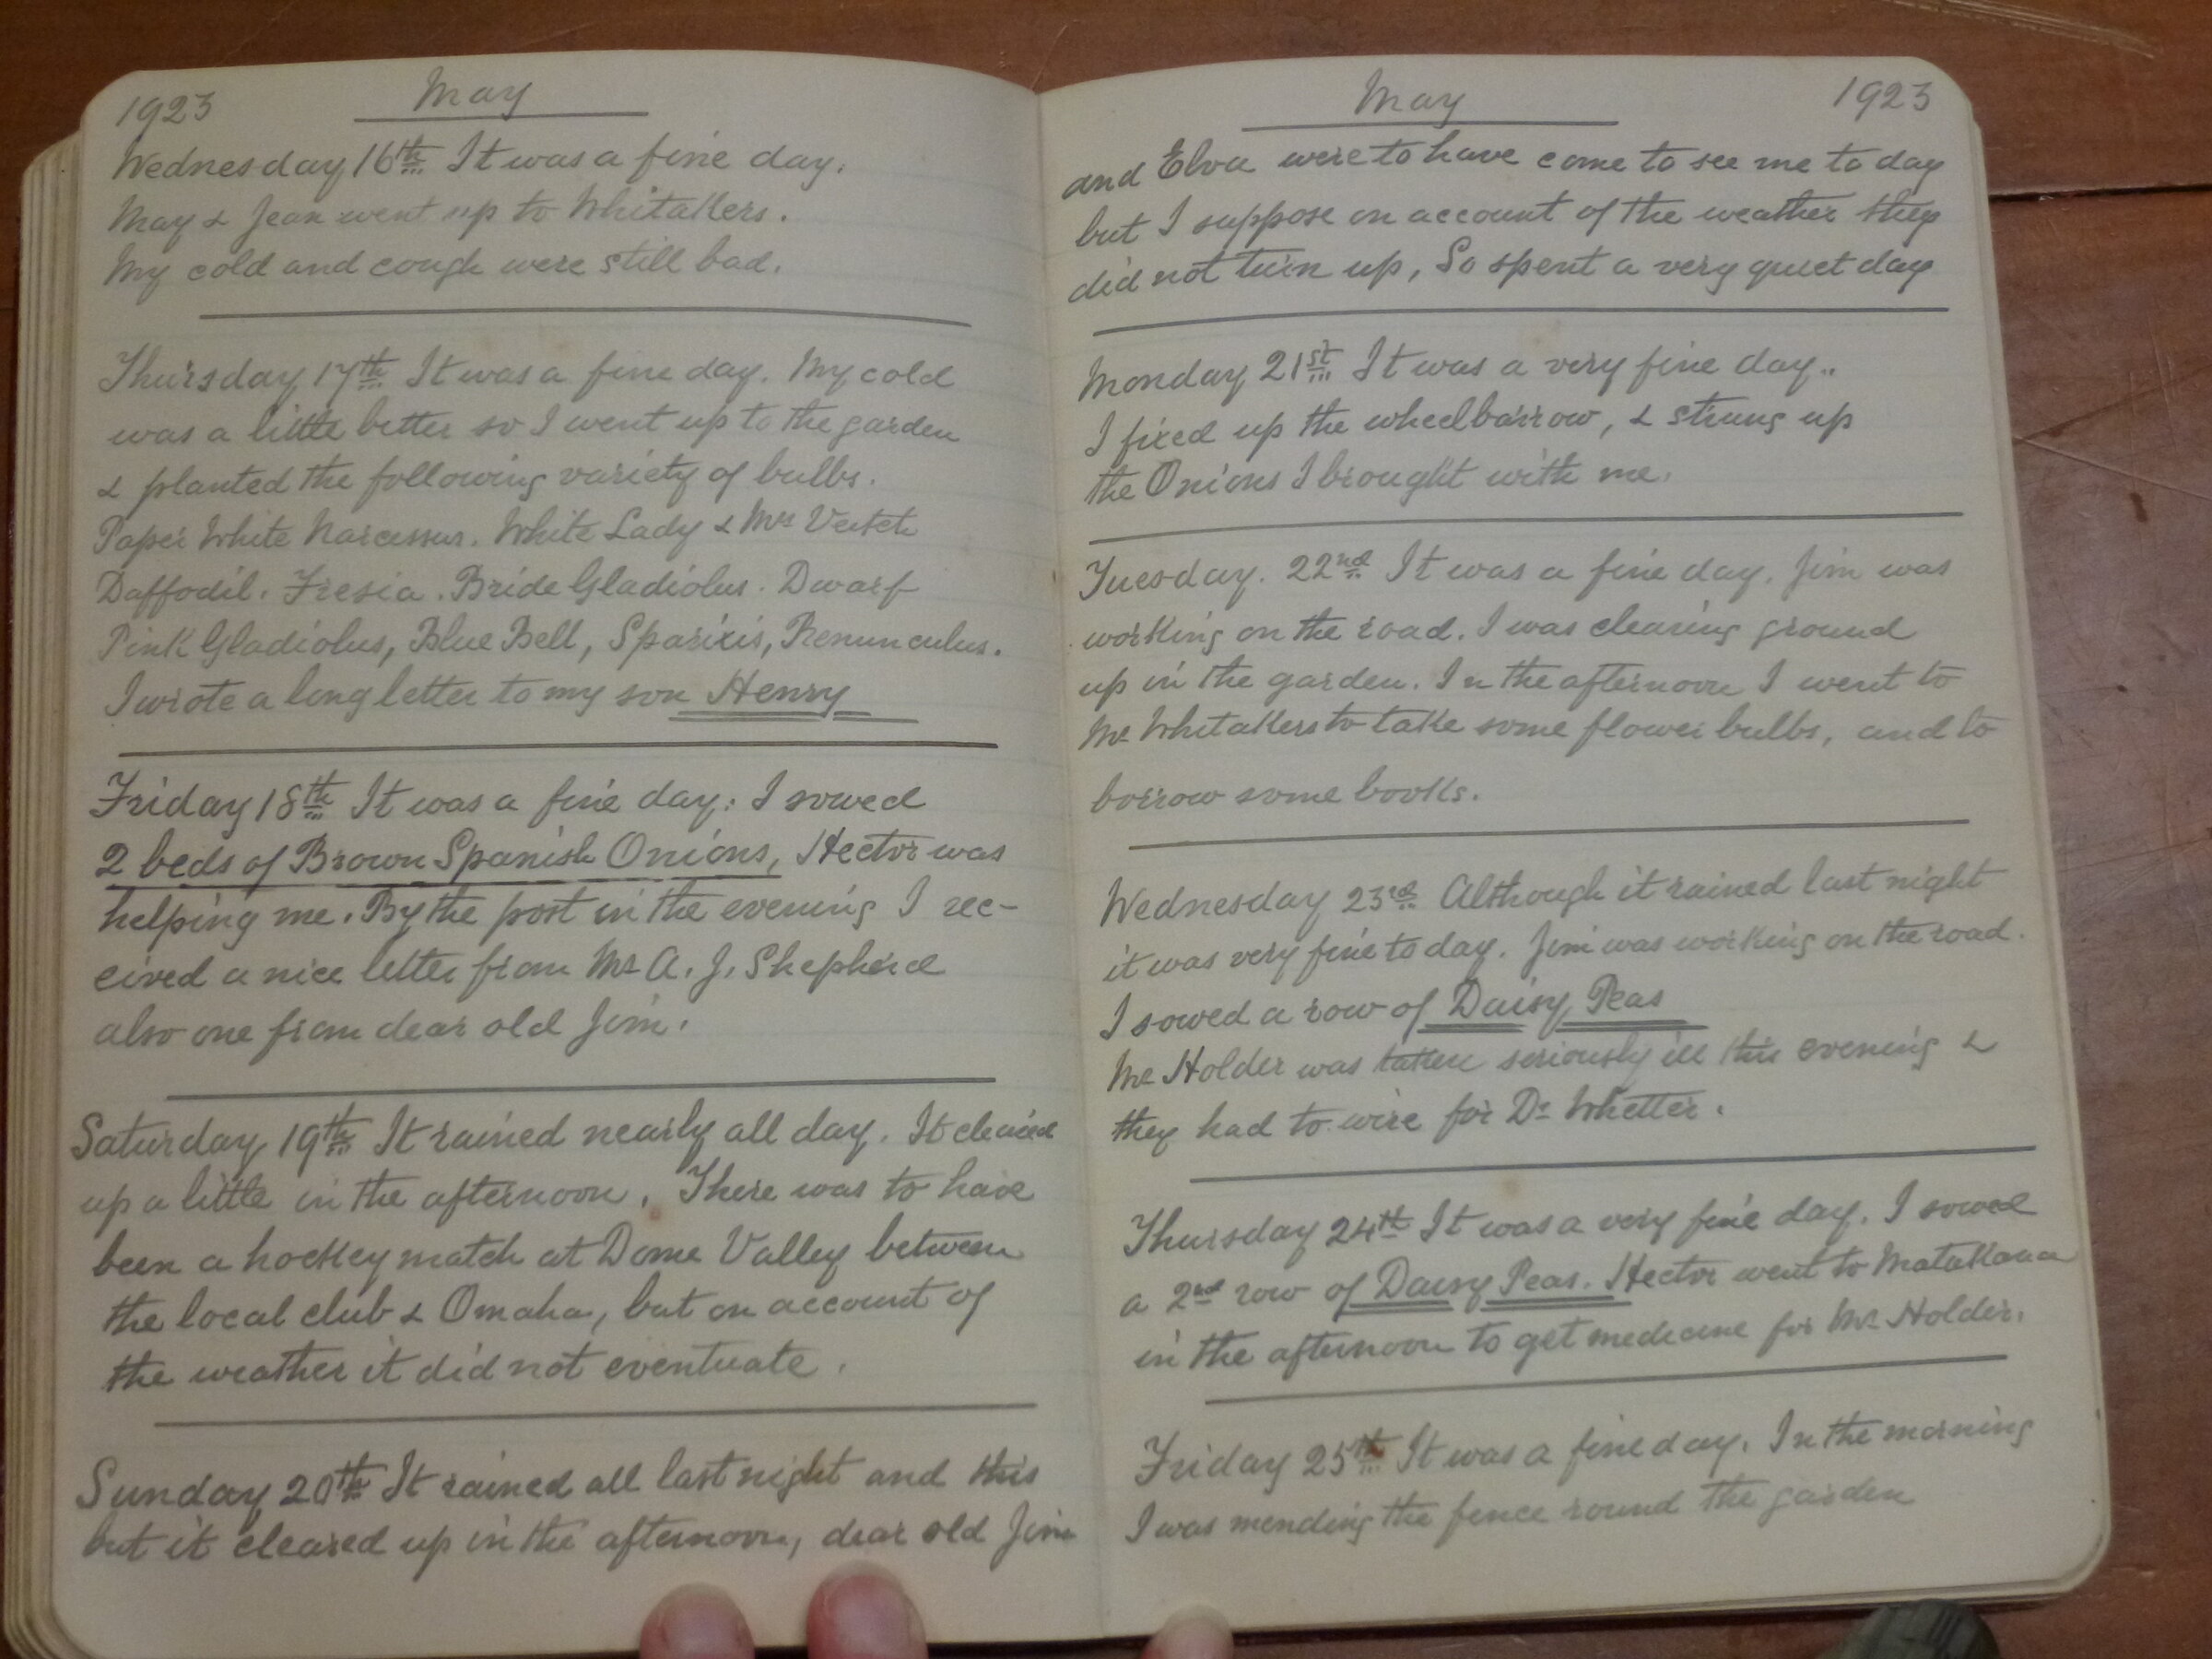 1923 May
Wednesday 16th It was a fine day.
May & Jean went up to Whitakers.
My cold and cough were still bad.
Thursday 17th It was a fine day. My cold
was a little better so I went up to the garden
& planted the following variety of bulbs.
Paper White Narcissus. White Lady & Mrs Veitch
Daffodil. Fresia. Bride Gladiolus. Dwarf
Pink Gladiolus, Blue Bell, Sparixis, Renunculus.
I wrote a long letter to my son Henry
Friday 18th It was a fine day. I sowed
2 beds of Brown Spanish Onions, Hector was
helping me. By the post in the evening I rec-
eived a nice letter from Mr A. J. Shepherd
also one from dear old Jim.
Saturday 19th It rained nearly all day. It cleared
up a little in the afternoon. There was to have
been a hockey match at Dome Valley between
the local club & Omaha, but on account of
the weather it did not eventuate.
Sunday 20th It rained all last night and this
but it cleared up in the afternoon, dear old Jim
May 1923
and Elva were to have come to see me to day
but I suppose on account of the weather they
did not turn up, So spent a very quiet day
Monday 21st It was a very fine day..
I fixed up the wheelbarrow, & strung up
the Onions I brought with me.
Tuesday. 22nd It was a fine day. Jim was
working on the road. I was clearing ground
up in the garden. In the afternoon I went to
Mr Whitakers to take some flower bulbs, and to
borrow some books.
Wednesday 23rd Although it rained last night
it was very fine to day. Jim was working on the road.
I sowed a row of Daisy Peas
Mr Holder was taken seriously ill this evening &
they had to wire for Dr Whetter.
Thursday 24th It was a very fine day. I sowed
a 2nd row of Daisy Peas. Hector went to Matakana
in the afternoon to get medecine for Mr Holder.
Friday 25th It was a fine day. In the morning
I was mending the fence round the garden